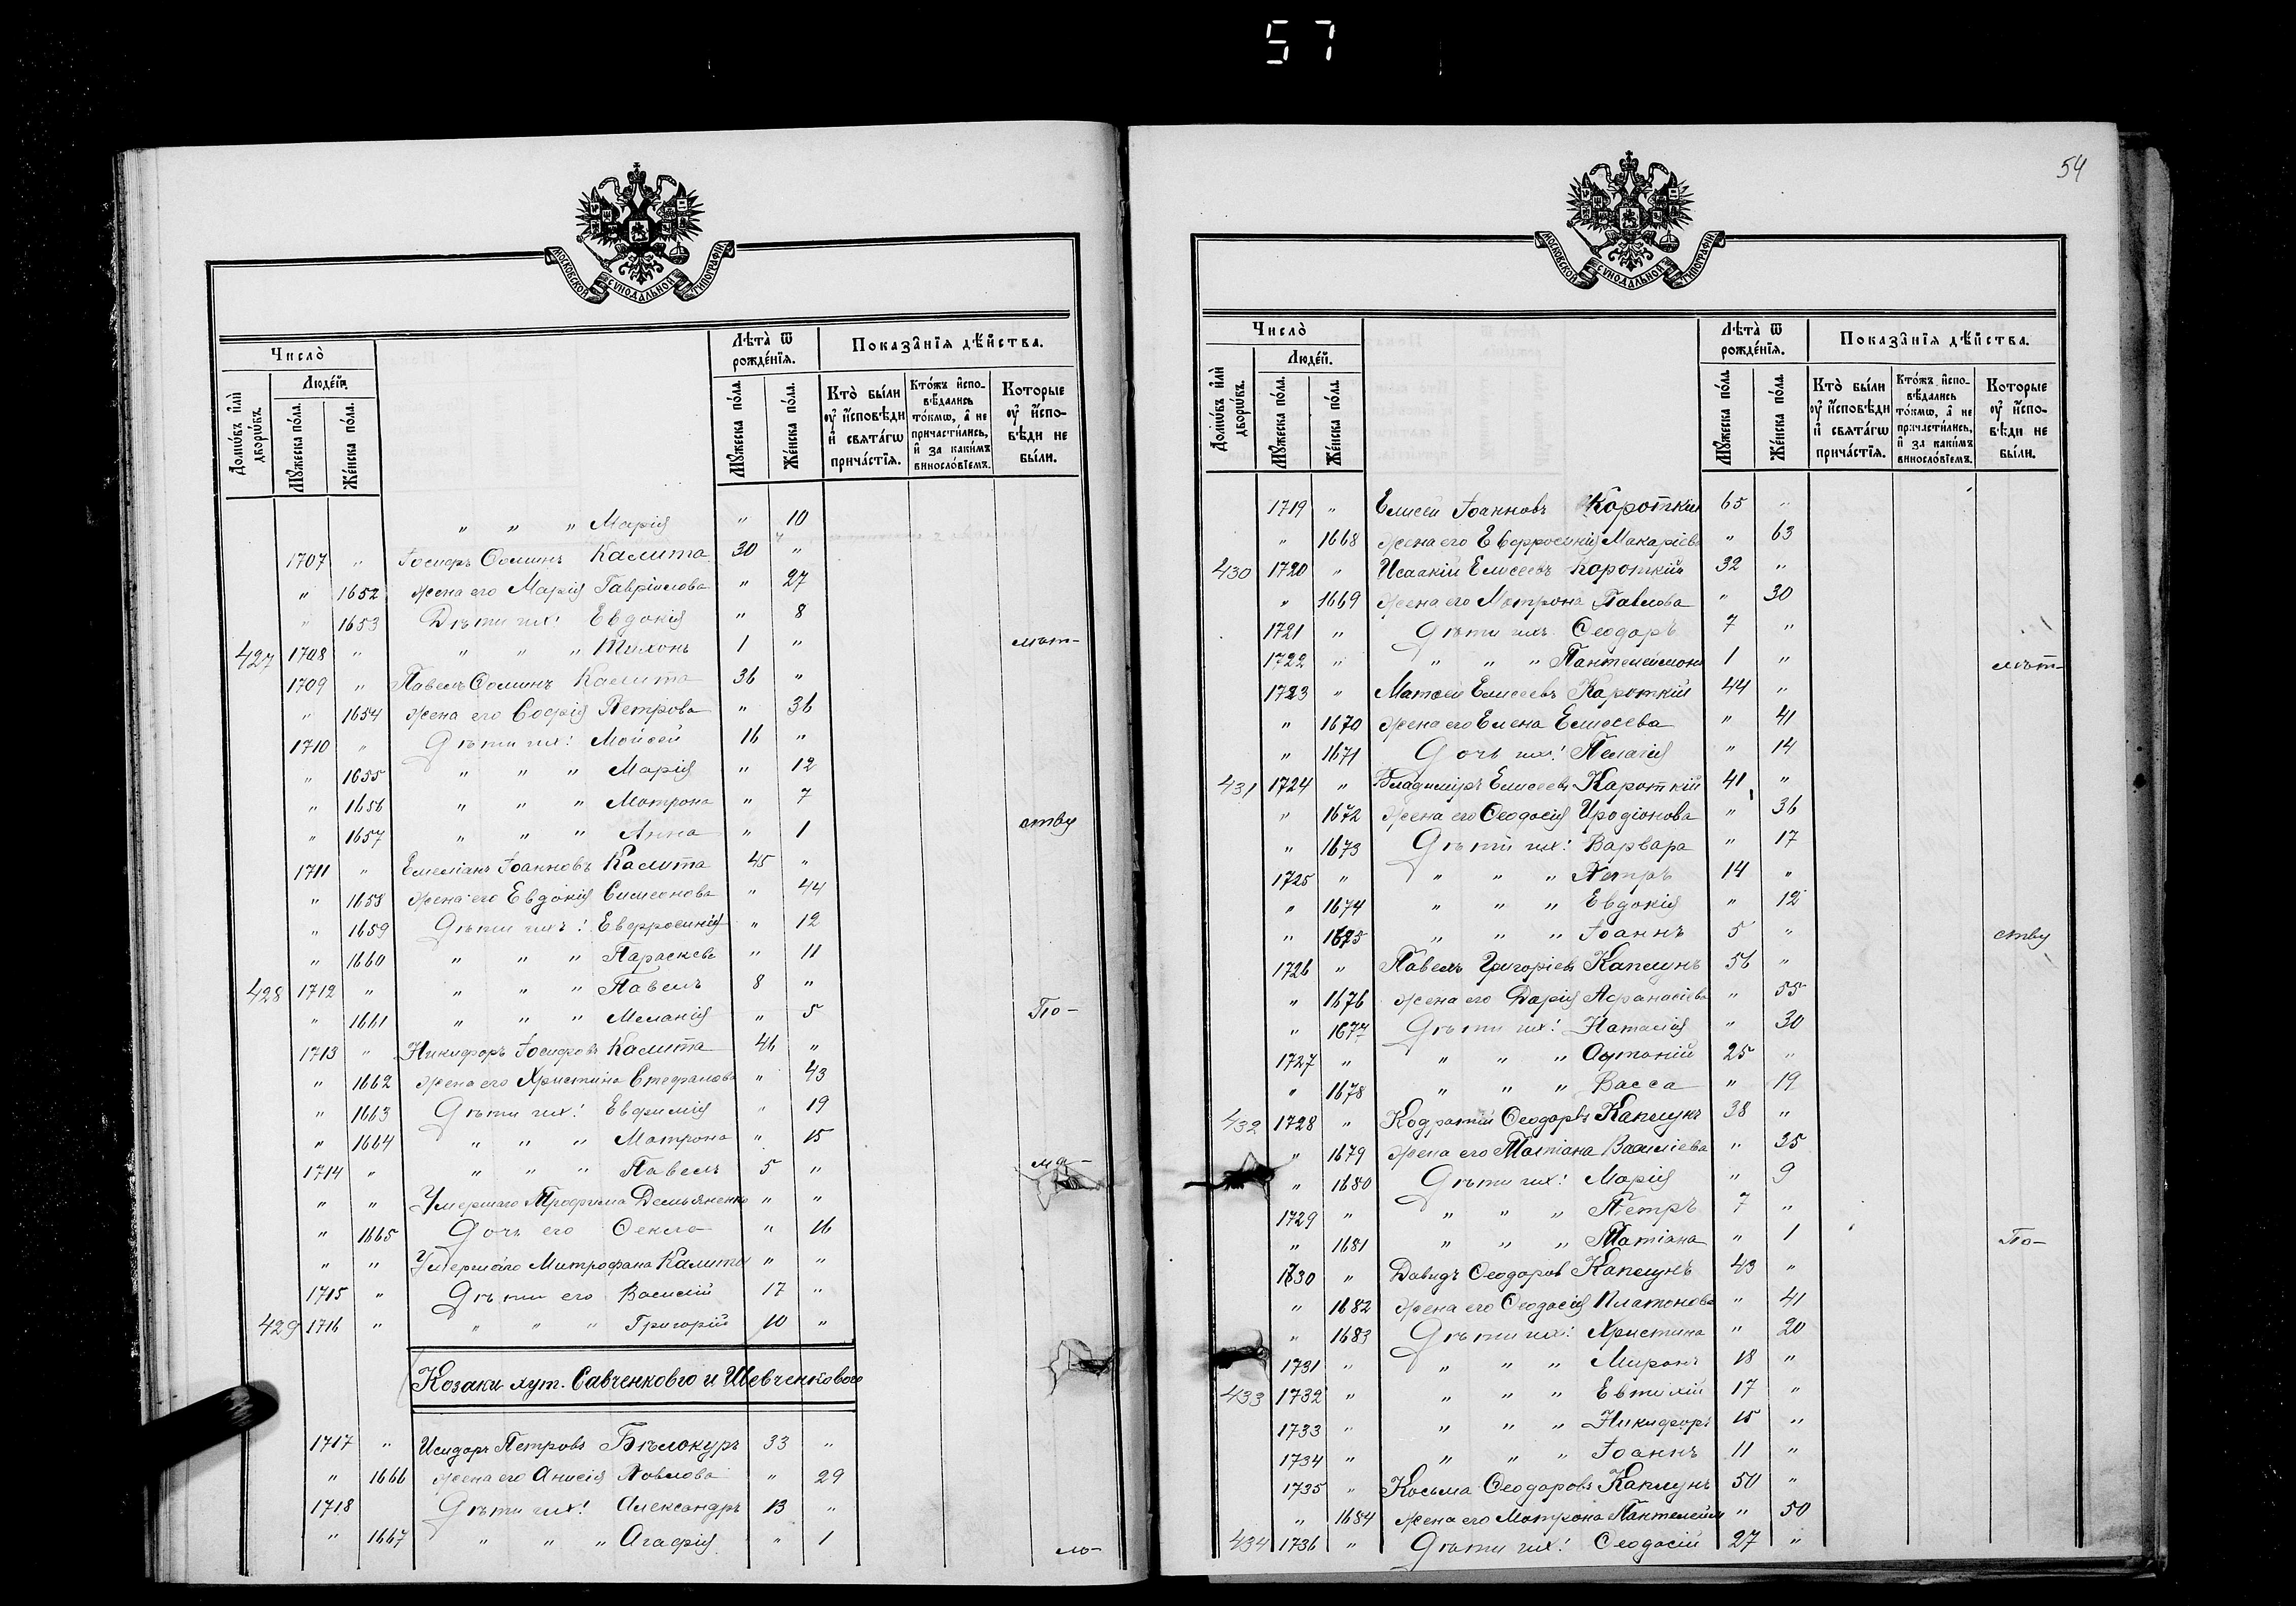 57
МОСКОВСКОЙ СУНОДАЛЬНОЙ ТИПОГРАФІИ
Число̀
Людéй.
Домѡ́въ и҆лѝ дворѡ́въ.
Мꙋ́жеска по́ла.
Же́нска по́ла.
Лѣ́та ѿ рождéнїѧ.
Мꙋ́жеска по́ла.
Же́нска по́ла.
Показа̑нїѧ дѣ́йства.
Кто̀ бы́ли ᲂу҆ и҆сповѣди и҆ свѧта́гѡ прича́стїѧ.
Кто́жъ и҆спо-вѣдались то́кмѡ, а҆ не причасти́лись, и҆ за каки́мъ винословїемъ.
Которые ᲂу҆ и҆спо-вѣди не бы́ли.
" " " Марія " 10
1707 " Іосифъ Ѳоминъ Калита 30 "
" 1652 жена его Марія Гавріилова " 27
" 1653 Дѣти ихъ: Евдокія " 8
427 1708 " " " " Тихонъ 1 " лѣт-
1709 " Павелъ Ѳоминъ Калита 36 "
" 1654 жена его Софія Петрова " 36
1710 " Дѣти ихъ: Мойсей 16 "
" 1655 " " " Марія " 12
" 1656 " " " Матрона " 7
" 1657 " " " Анна " 1 ству
1711 " Емеліанъ Іоанновъ Калита 45 "
" 1658 жена его Евдокія Симеонова " 44
" 1659 Дѣти ихъ: Евфросинія " 12
" 1660 " " " Параскева " 11
428 1712 " " " " Павелъ 8 "
" 1661 " " " Меланія " 5 По-
1713 " Никифоръ Іосифовъ Калита 46 "
" 1662 жена его Христина Стефанова " 43
" 1663 Дѣти ихъ: Евфимія " 19
" 1664 " " " Матрона " 15
1714 " " " " Павелъ 5 " ма-
" " Умершаго Трофима Демьяненко " "
" 1665 Дочь его Ѳекла " 16
" " Умершаго Митрофана Калиты " "
1715 " Дѣти его Василій 17 "
429 1716 " " " " Григорій 10 "
Козаки хут. Савченкового и Шевченкового
1717 " Исидоръ Петровъ Бѣлокуръ 33 "
" 1666 жена его Анисія Павлова " 29
1718 " Дѣти ихъ: Александръ 13 "
" 1667 " " " Агафія " 1 ло-
54
МОСКОВСКОЙ СУНОДАЛЬНОЙ ТИПОГРАФІИ
Число̀
Людéй.
Домѡ́въ и҆лѝ дворѡ́въ.
Мꙋ́жеска по́ла.
Же́нска по́ла.
Лѣ́та ѿ рождéнїѧ.
Мꙋ́жеска по́ла.
Же́нска по́ла.
Показа̑нїѧ дѣ́йства.
Кто̀ бы́ли ᲂу҆ и҆сповѣди и҆ свѧта́гѡ прича́стїѧ.
Кто́жъ и҆спо-вѣдались то́кмѡ, а҆ не причасти́лись, и҆ за каки́мъ винословїемъ.
Которые ᲂу҆ и҆спо-вѣди не бы́ли.
1719 " Елисей Іоанновъ Короткій 65 "
" 1668 жена его Евфросинія Макаріева " 63
430 1720 " Исаакій Елисеевъ Короткій 32 "
" 1669 жена его Матрона Павлова " 30
1721 " Дѣти ихъ Ѳеодоръ 7 "
1722 " " " " Пантелеймонъ 1 " лѣт-
1723 " Матѳей Елисеевъ Короткій 44 "
" 1670 жена его Елена Елисеева " 41
" 1671 Дочь ихъ: Пелагія " 14
431 1724 " Владиміръ Елисеевъ Короткій 41 "
" 1672 жена его Ѳеодосія Иродіонова " 36
" 1673 Дѣти ихъ: Варвара " 17
1725 " " " " Петръ 14 "
" 1674 " " " Евдокія " 12
" 1675 " " " Іоаннъ 5 " ству
1726 " Павелъ Григоріевъ Каплунъ 56 "
" 1676 жена его Дарія Афанасіева " 55
" 1677 Дѣти ихъ: Наталія " 30
1727 " " " " Антоній 25 "
" 1678 " " " Васса " 19
432 1728 " Кодратій Ѳеодоровъ Каплунъ 38 "
" 1679 жена его Татіана Василіева " 35
" 1680 Дѣти ихъ: Марія " 9
1729 " " " " Петръ 7 "
" 1681 " " " Татіана " 1 По-
1730 " Давидъ Ѳеодоров Каплунъ 43 "
" 1682 жена его Ѳеодосія Платонова " 41
" 1683 Дѣти ихъ: Христина " 20
1731 " " " " Миронъ 18 "
433 1732 " " " " Евтихій 17 "
1733 " " " " Никифоръ 15 "
1734 " " " " Іоаннъ 11 "
1735 " Косьма Ѳеодоровъ Каплунъ 50 "
" 1684 жена его Матрона Пантелейм " 50
434 1736 " Дѣти ихъ: Ѳеодосій 27 "